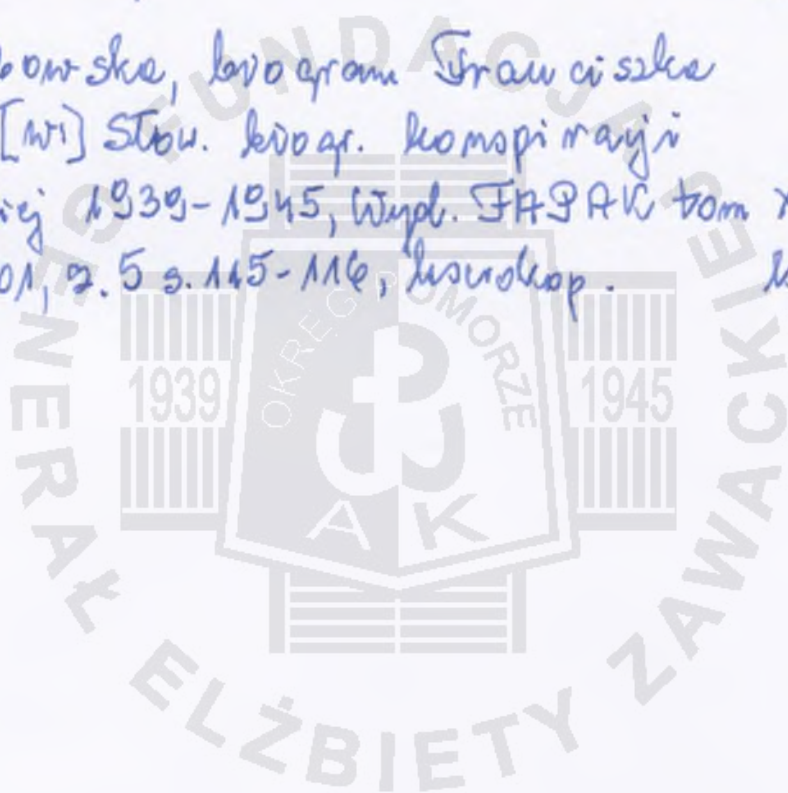 owska, biogram Franciszka
[w:] Słow. biogr. konspiracji
iej 1939-1945, Wyd. FAPAK tom
01, s. 115-116, kserokop.
FUNDACJA
GENERAŁ ELŻBIETY ZAWACKIEJ
OKRĘG POMORZE
1939
1945
A K